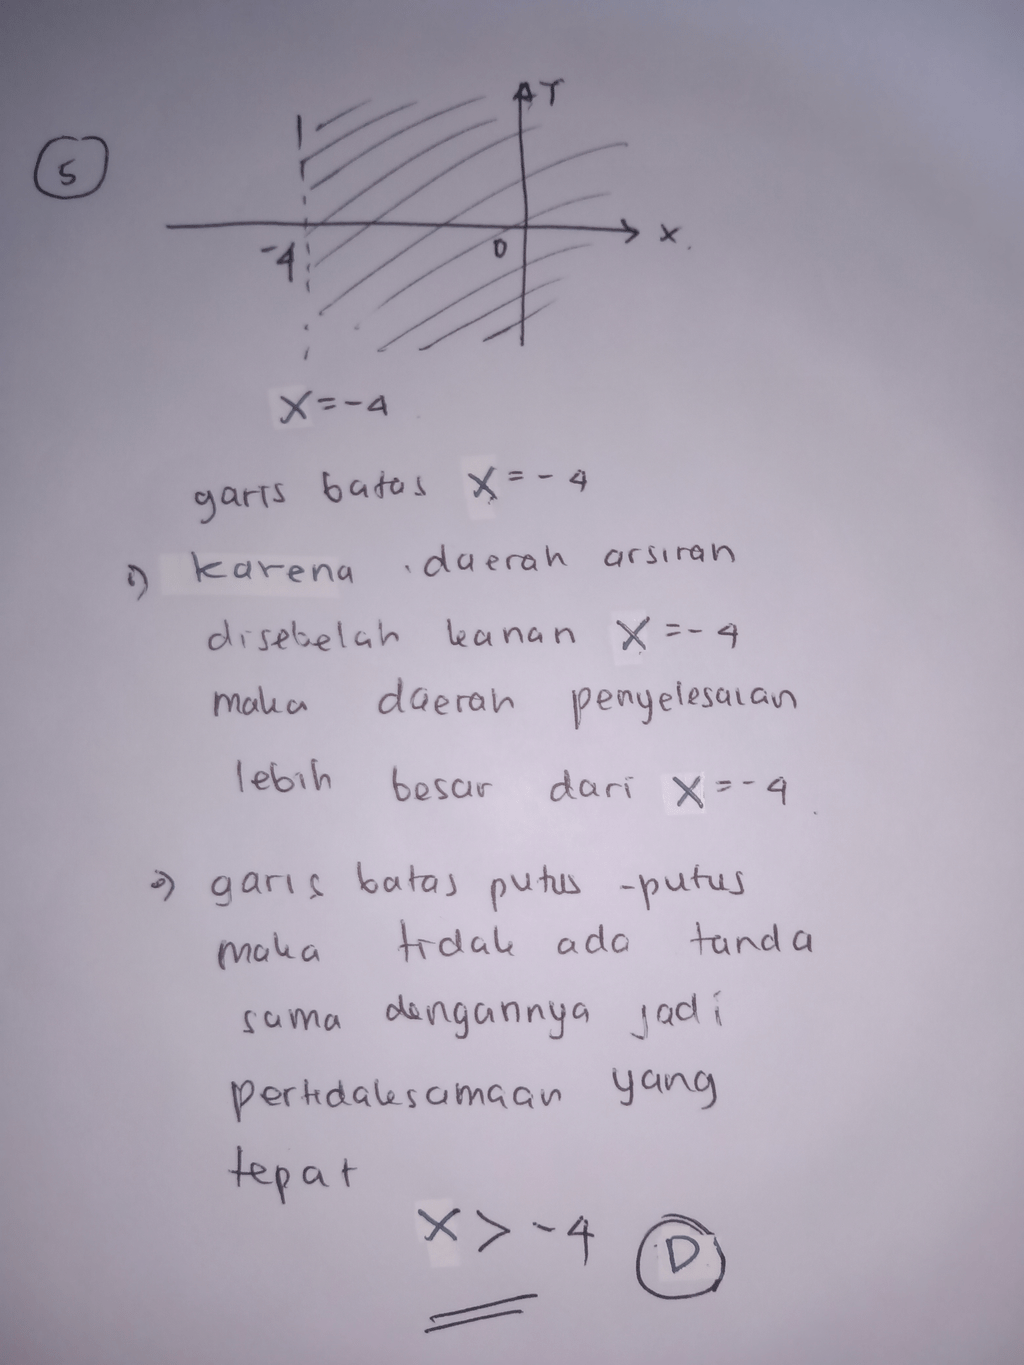 5
Y
-4
0
x.
x=-4
garis batas x=-4
1) karena daerah arsiran
disebelah kanan x=-4
maka daerah penyelesaian
lebih besar dari x=-4
2) garis batas putus-putus
maka tidak ada tanda
sama dengannya jadi
pertidaksamaan yang
tepat
x > -4 D